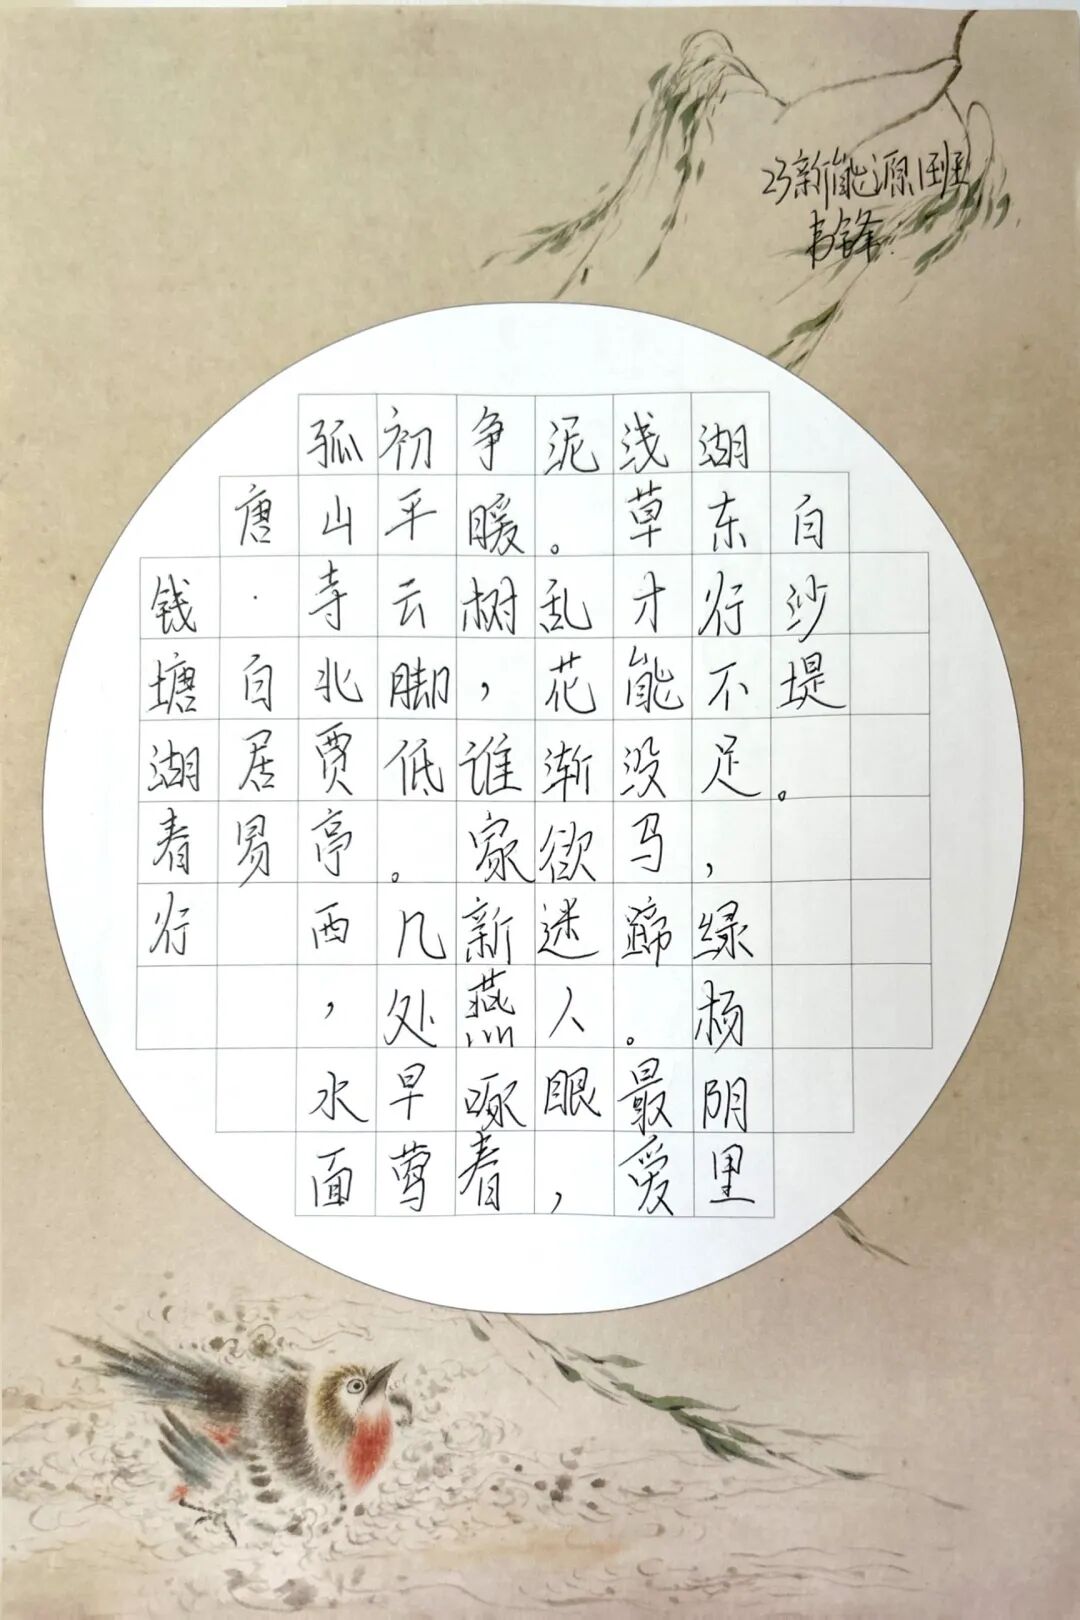 23新能源1班
韦锋
钱塘湖春行
唐·白居易
孤山寺北贾亭西，水面
初平云脚低。几处早莺
争暖树，谁家新燕啄春
泥。乱花渐欲迷人眼，
浅草才能没马蹄。最爱
湖东行不足，绿杨阴里
白沙堤。